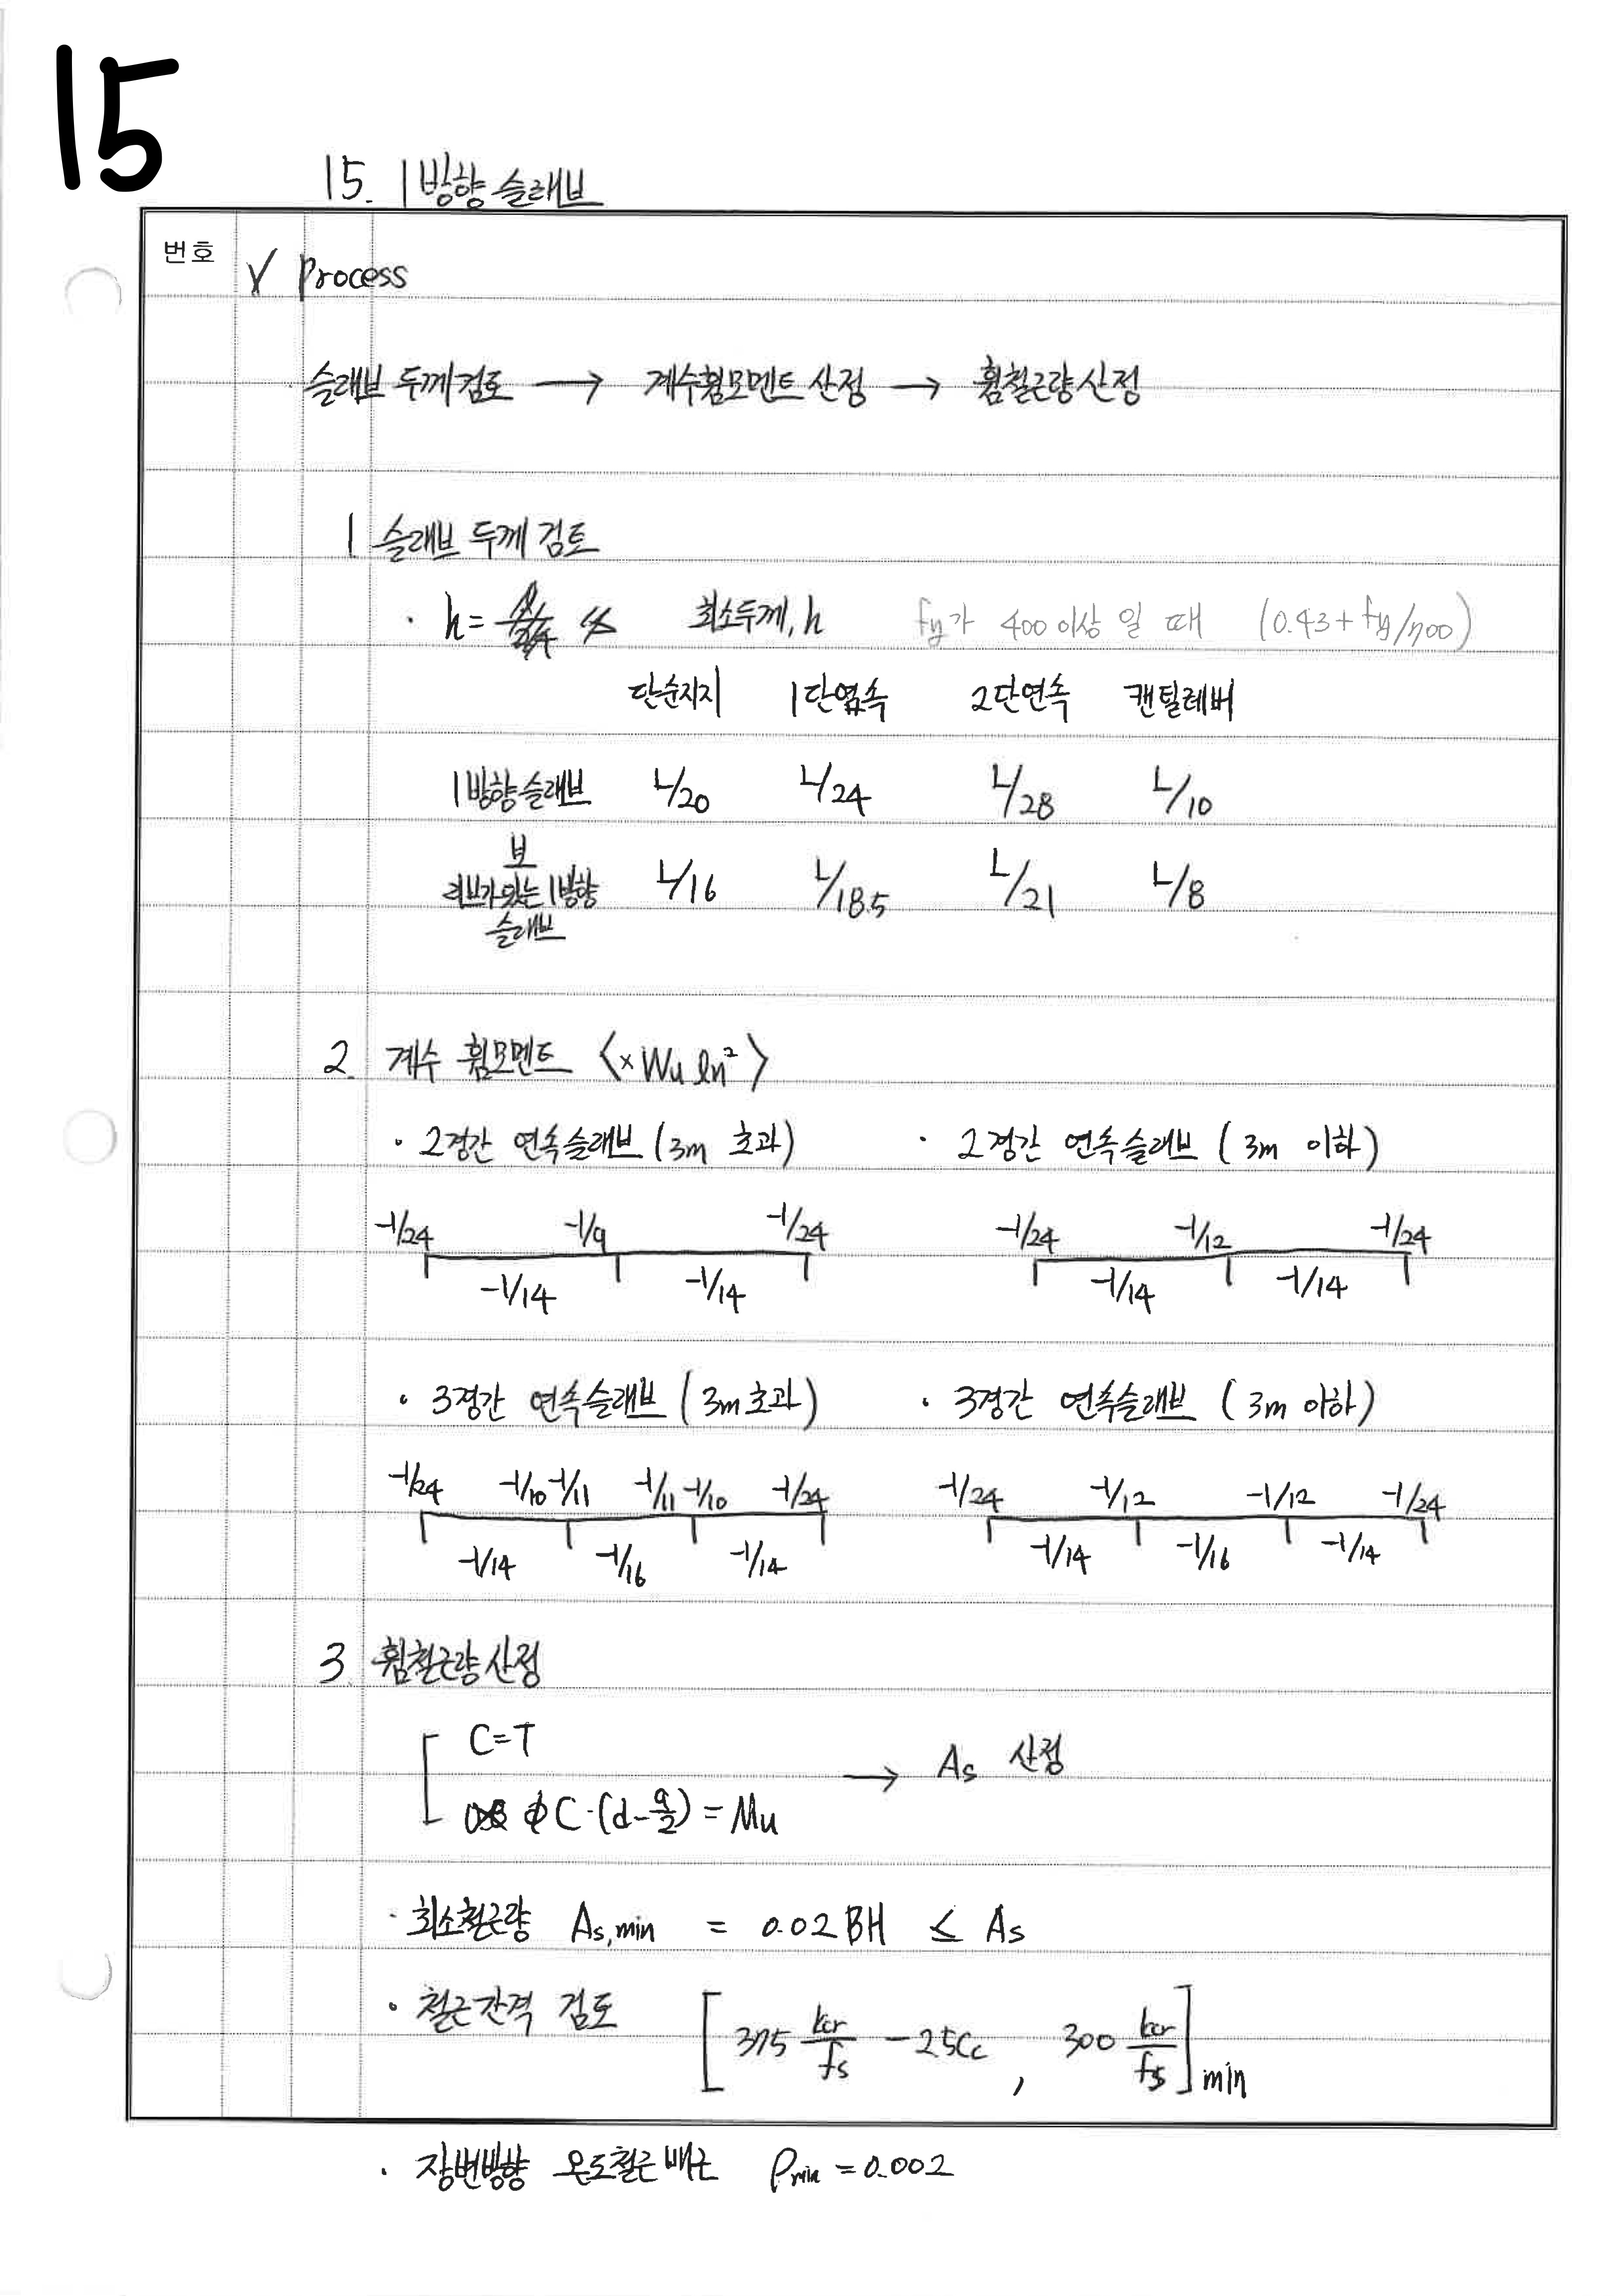 15
15. 1방향 슬래브
번호
√ Process
슬래브 두께 검토 → 계수휨모멘트 산정 → 휨철근량 산정
1 슬래브 두께 검토
· h = 최소두께, h fy가 400 이상 일 때 (0.43 + fy/700)
단순지지 1단연속 2단연속 캔틸레버
1방향 슬래브 L/20 L/24 L/28 L/10
보
리브가 있는 1방향 L/16 L/18.5 L/21 L/8
슬래브
2. 계수 휨모멘트 〈× Wu ln²〉
· 2경간 연속슬래브 (3m 초과) · 2경간 연속슬래브 (3m 이하)
-1/24 -1/9 -1/24 -1/24 -1/12 -1/24
-1/14 -1/14 -1/14 -1/14
· 3경간 연속슬래브 (3m 초과) · 3경간 연속슬래브 (3m 이하)
-1/24 -1/10 -1/11 -1/11 -1/10 -1/24 -1/24 -1/12 -1/12 -1/24
-1/14 -1/16 -1/14 -1/14 -1/16 -1/14
3. 휨철근량 산정
C=T
→ As 산정
φC·(d-a/2) = Mu
· 최소철근량 As,min = 0.02BH ≤ As
· 철근간격 검토 [375 kcr/fs - 2.5Cc , 300 kcr/fs]min
· 장변방향 온도철근 배근 ρmin = 0.002